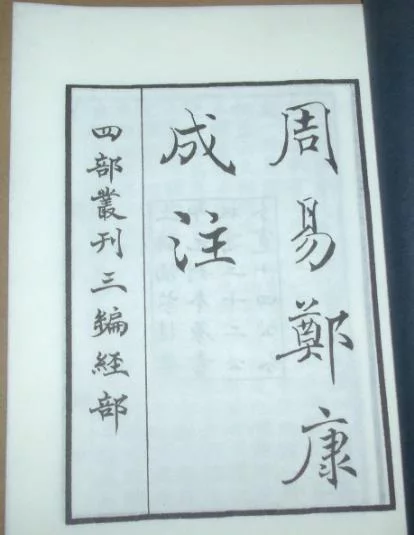 周易鄭康
成注
四部叢刊三編経部